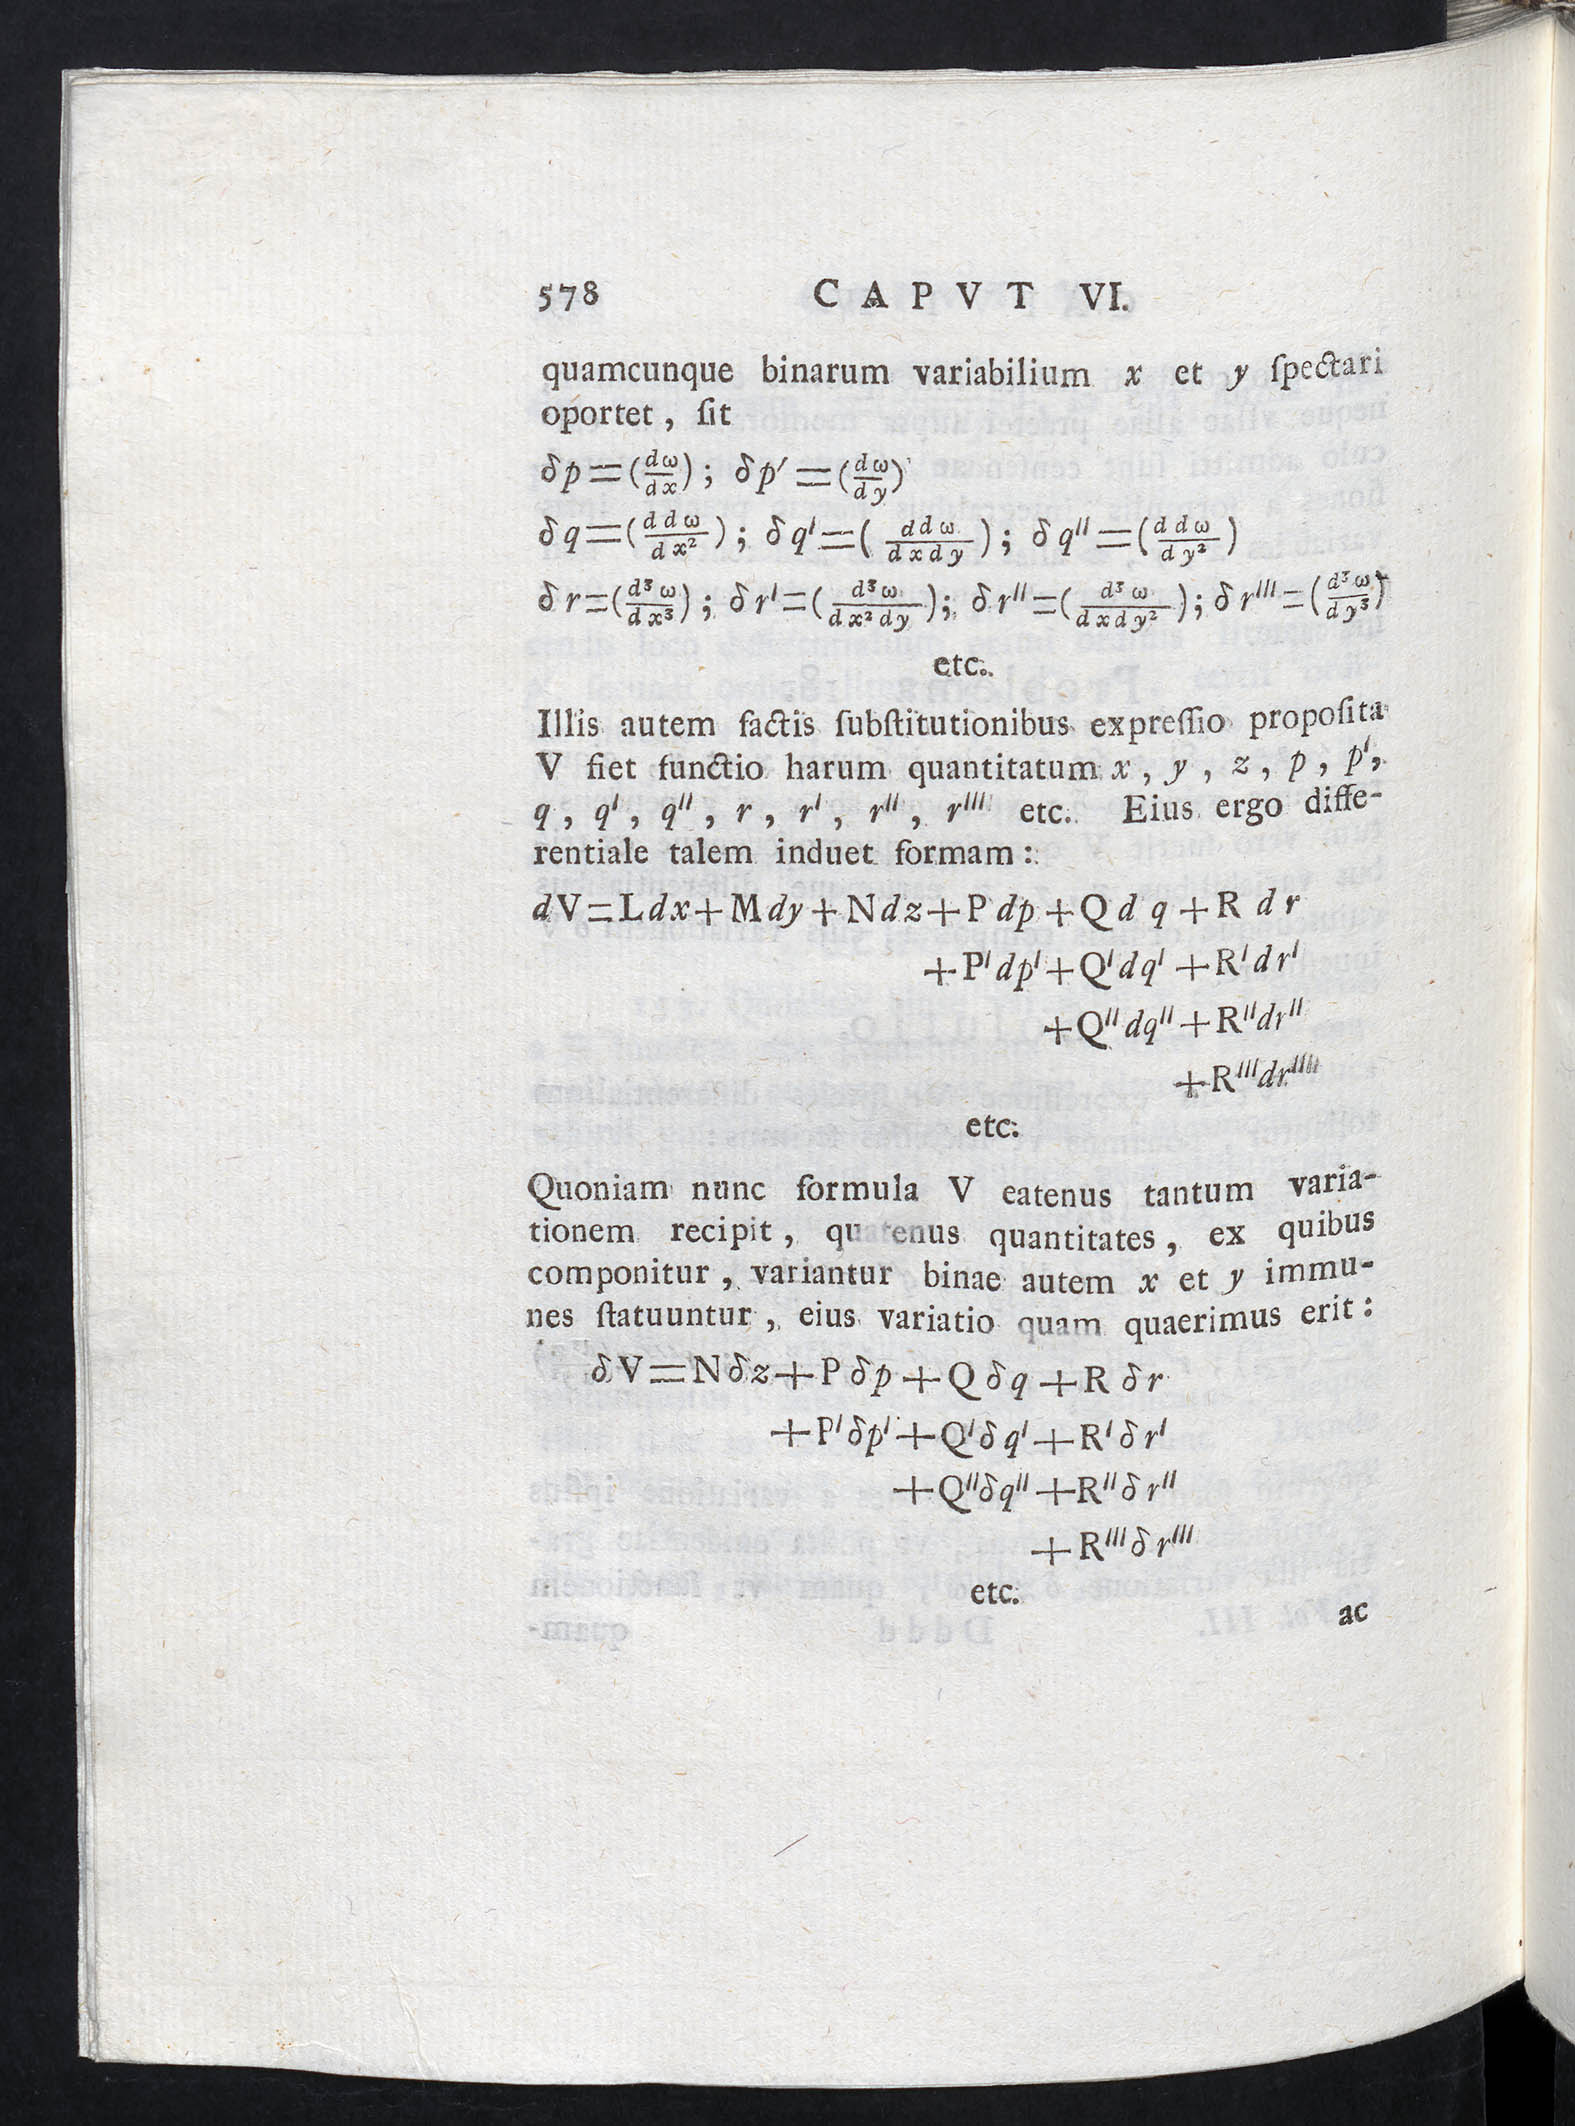 578 CAPVT VI.
quamcunque binarum variabilium x et y ſpectari
oportet, ſit
δp=(dω/dx); δp′=(dω/dy)
δq=(ddω/dx²); δq′=(ddω/dxdy); δq′′=(ddω/dy²)
δr=(d³ω/dx³); δr′=(d³ω/dx²dy); δr′′=(d³ω/dxdy²); δr′′′=(d³ω/dy³)
etc.
Illis autem factis ſubſtitutionibus expreſſio propoſita
V fiet functio harum quantitatum x, y, z, p, p′,
q, q′, q′′, r, r′, r′′, r′′′ etc. Eius ergo diffe-
rentiale talem induet formam:
dV=Ldx+Mdy+Ndz+Pdp+Qdq+Rdr
+P′dp′+Q′dq′+R′dr′
+Q′′dq′′+R′′dr′′
+R′′′dr′′′
etc.
Quoniam nunc formula V eatenus tantum varia-
tionem recipit, quatenus quantitates, ex quibus
componitur, variantur binae autem x et y immu-
nes ſtatuuntur, eius variatio quam quaerimus erit:
δV=Nδz+Pδp+Qδq+Rδr
+P′δp′+Q′δq′+R′δr′
+Q′′δq′′+R′′δr′′
+R′′′δr′′′
etc.
ac